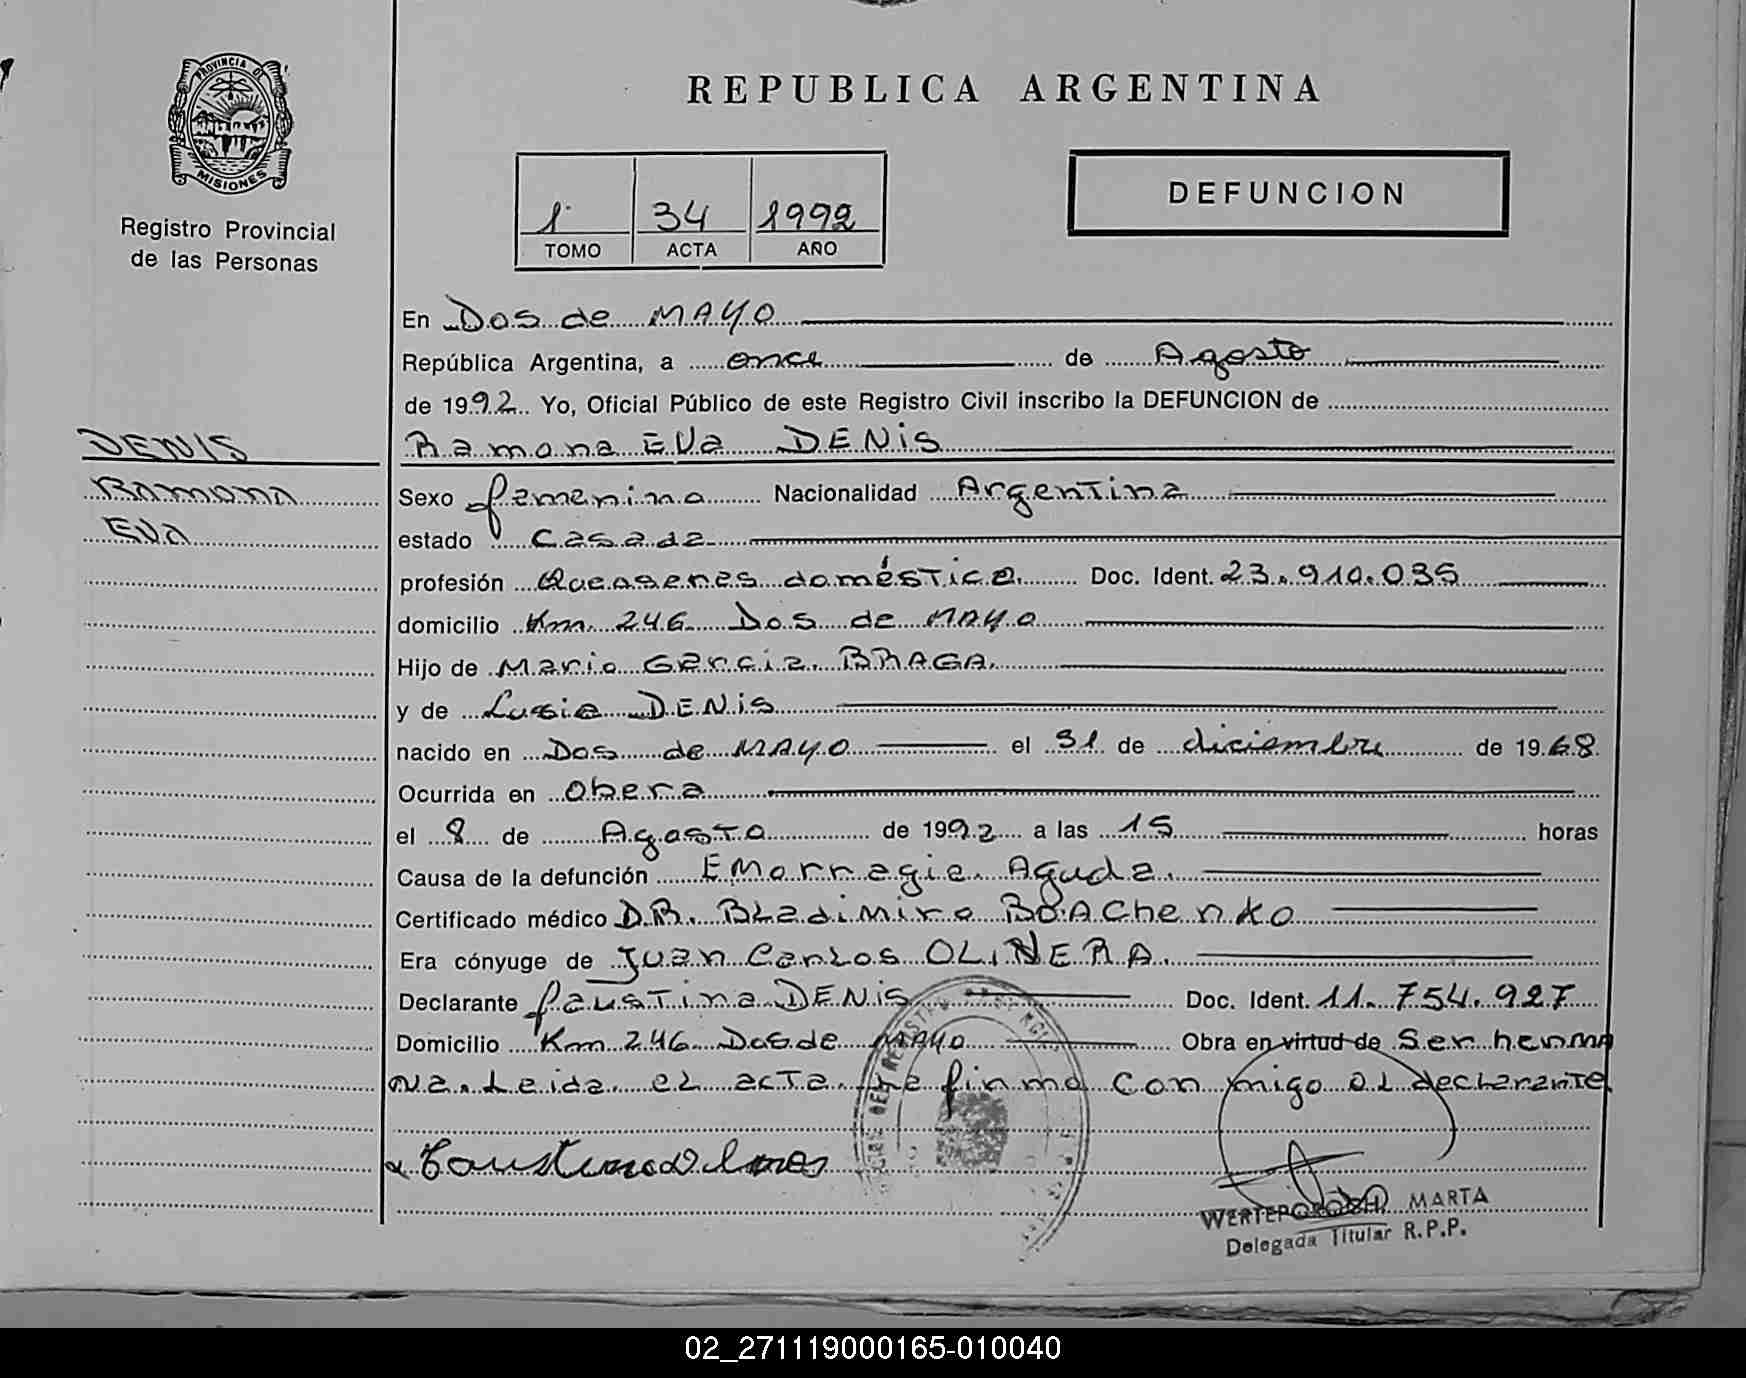 PROVINCIA DE
MISIONES
Registro Provincial
de las Personas
REPUBLICA ARGENTINA
1 34 1992
TOMO ACTA AÑO
DEFUNCION
En Dos de MAYO
República Argentina, a once de Agosto
de 1992 Yo, Oficial Público de este Registro Civil inscribo la DEFUNCION de
DENIS
Ramona EVa DENiS
Ramona
EVA
Sexo femenino Nacionalidad Argentina
estado Casada
profesión Queaseres doméstico Doc. Ident. 23.910.035
domicilio Km. 246 Dos de MAYO
Hijo de Mario Garcia BRAGA
y de Lusia DENiS
nacido en Dos de MAYO el 31 de diciembre de 1968
Ocurrida en Obera
el 8 de Agosto de 1992 a las 15 horas
Causa de la defunción EMorragia Aguda.
Certificado médico DR. BLadiMiro BOACHenKo
Era cónyuge de JUan CarLos OLiVERA.
Declarante faustina DENiS Doc. Ident. 11.754.927
Domicilio Km 246 Dos de MAYO Obra en virtud de Ser herma
na. Leida el acta la firma conmigo el declarante
WERTEPOROSH, MARTA
Delegada Titular R.P.P.
02_271119000165-010040